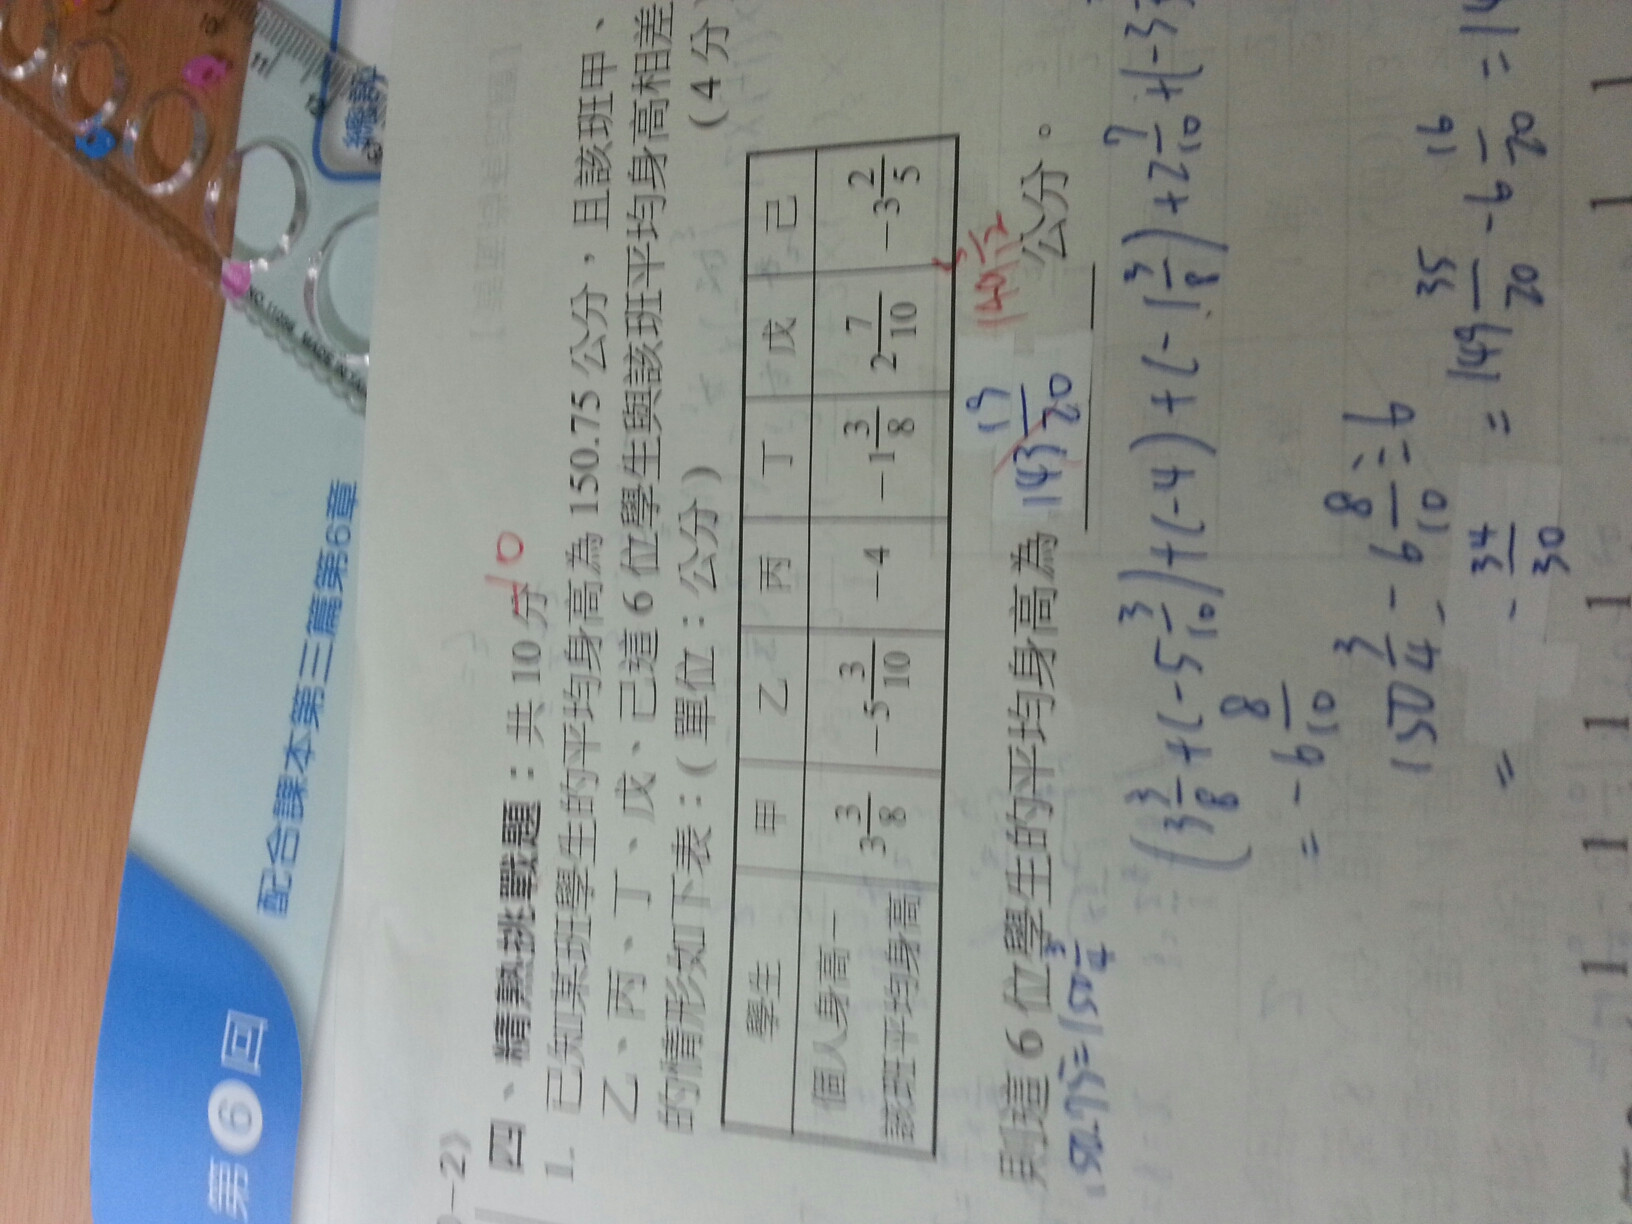 配合課本第三篇第6章
第6回
四、精熟挑戰題：共10分
-10
1. 已知某班學生的平均身高為150.75公分，且該班甲、
乙、丙、丁、戊、己這6位學生與該班平均身高相差
的情形如下表：(單位：公分) (4分)
學生 甲 乙 丙 丁 戊 己
個人身高－ 3 3/8 −5 3/10 −4 −1 3/8 2 7/10 −3 2/5
該班平均身高
則這6位學生的平均身高為 143 19/20 公分。
150.75=150 3/4
(3 3/8+(-5 3/10)+(-4)+(-1 3/8)+2 7/10+(-3
=-6 8/10
150 3/4 - 6 8/10 ÷6
= 149 35/20 - 6 16/20 =